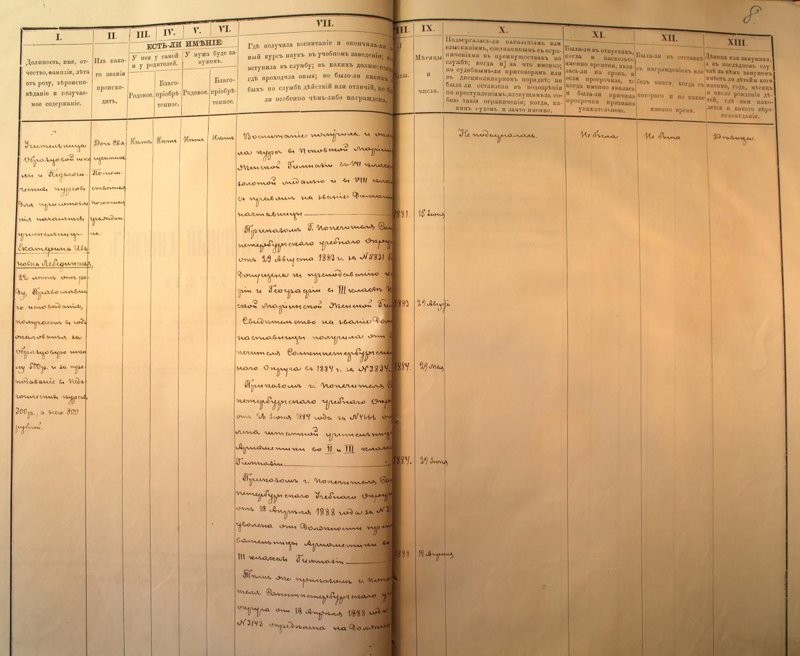 8
I.
Должность, имя, от-
чество, фамилія, лѣта
отъ роду, вѣроиспо-
вѣданіе и получае-
мое содержаніе.
II.
Изъ како-
го званія
происхо-
дитъ.
III. IV. V. VI.
ЕСТЬ-ЛИ ИМѢНІЕ:
У нея у самой
и у родителей.
У мужа буде за-
мужемъ.
Родовое.
Благо-
пріобрѣ-
тенное.
Родовое.
Благо-
пріобрѣ-
тенное.
VII.
Гдѣ получила воспитаніе и окончила-ли
ный курсъ наукъ въ учебномъ заведеніи;
вступила въ службу; въ какихъ должностяхъ
гдѣ проходила оныя; не было-ли какихъ
быхъ по службѣ дѣйствій или отличій, не бы
ли особенно чѣмъ-либо награждена
III.
IX.
Мѣсяцы
и
числа.
X.
Подвергалась-ли наказаніямъ или
взысканіямъ, соединеннымъ съ огра-
ниченіями въ преимуществахъ по
службѣ; когда и за что именно:
по судебнымъ-ли приговорамъ или
въ дисциплинарномъ порядкѣ; не
была ли оставлена въ подозрѣніи
по преступленіямъ, влекущимъ за со-
бою такія ограниченія; когда, ка-
кимъ судомъ и за что именно.
XI.
Была-ли въ отпускахъ,
когда и насколько
именно времени, явля-
лась-ли на срокъ, и
если просрочила, то
когда именно явилась
и была-ли причина
просрочки признана
уважительною.
XII.
Была-ли въ отставкѣ
съ награжденіемъ или
безъ онаго, когда съ
котораго и по какое
именно время.
XIII.
Дѣвица или замужняя,
въ послѣднемъ слу-
чаѣ за кѣмъ замужемъ,
имѣетъ-ли дѣтей и кого
именно, годъ, мѣсяцъ
и число рожденія дѣ-
тей, гдѣ они нахо-
дятся и какого вѣро-
исповѣданія.
Учительница
Образцовой шко
лы и Педагоги-
ческихъ курсовъ
для приготовле
нія начальныхъ
учительницъ
Екатерина Ива
новна Лебединская,
22 лѣтъ отъ ро-
ду, Православна
го исповѣданія,
получаетъ въ годъ
жалованья за
Образцовую шко
лу 500р. и за пре-
подаваніе въ Педа-
гогическихъ курсахъ
300р., а всего 800
рублей.
Нѣтъ Нѣтъ Нѣтъ Нѣтъ
Воспитаніе получила и окончи
ла курсъ въ Псковской Маріин
Женской Гимназіи въ VII класс
золотой медалью и въ VIII кла
съ правомъ на званіе Домашн
наставницы
1881. 15 Іюня
Приказомъ Г. Попечителя Сан
петербургскаго учебнаго Округа
отъ 29 Августа 1883 г. за N5831
допущена къ преподаванію
ріи и Географіи въ III классѣ П
ской Маріинской Женской Гим
1883 29 Августа
Свидѣтельство на званіе Дом
наставницы получила отъ
печителя Санктпетербургска
наго Округа въ 1884 г. за N3834.
1884. 29 Мая
Приказомъ г. Попечителя С
петербургскаго учебнаго Окру
Іюня 1887 года за
лена штатной учительниц
Ариѳметики во II и III класс
Гимназіи
1887. 29 Іюня
Приказомъ г. Попечителя Сан
петербургскаго Учебнаго Округа
отъ 18 Апрѣля 1888 года за N 31
уволена отъ должности препо
вательницы Ариѳметики во
III классахъ Гимназіи
1888 18 Апрѣля
Тѣмъ же приказомъ г. Попечи
теля Санктпетербургскаго уч
округа отъ 18 Апрѣля 1888 года
N3143 опредѣлена на должно
Не подвергалась.
Не была
Не была
Дѣвица